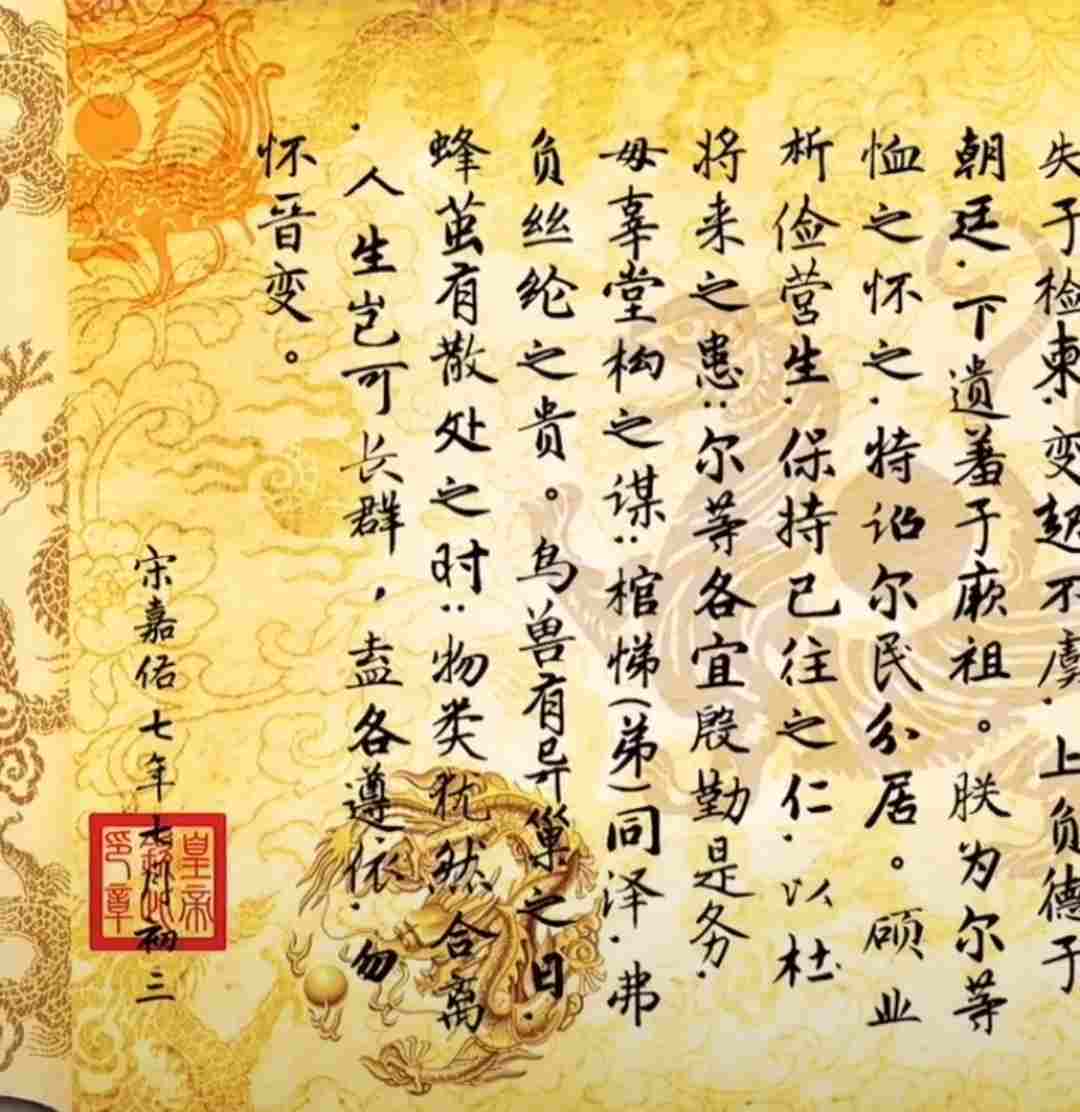 失于检束.变起不虞.上负德于
朝廷.下遗羞于厥祖。朕为尔等
恤之怀之.特诏尔民分居。硕业
析俭营生.保持已往之仁.以杜
将来之患:尔等各宜殷勤是务.
毋辜堂构之谋:棺悌(弟)同泽.弗
负丝纶之贵。鸟兽有异巢之日.
蜂茧有散处之时:物类犹然合离
.人生岂可长群，盍各遵依.勿
怀晋变。
宋嘉佑七年七月初三
皇帝
印章